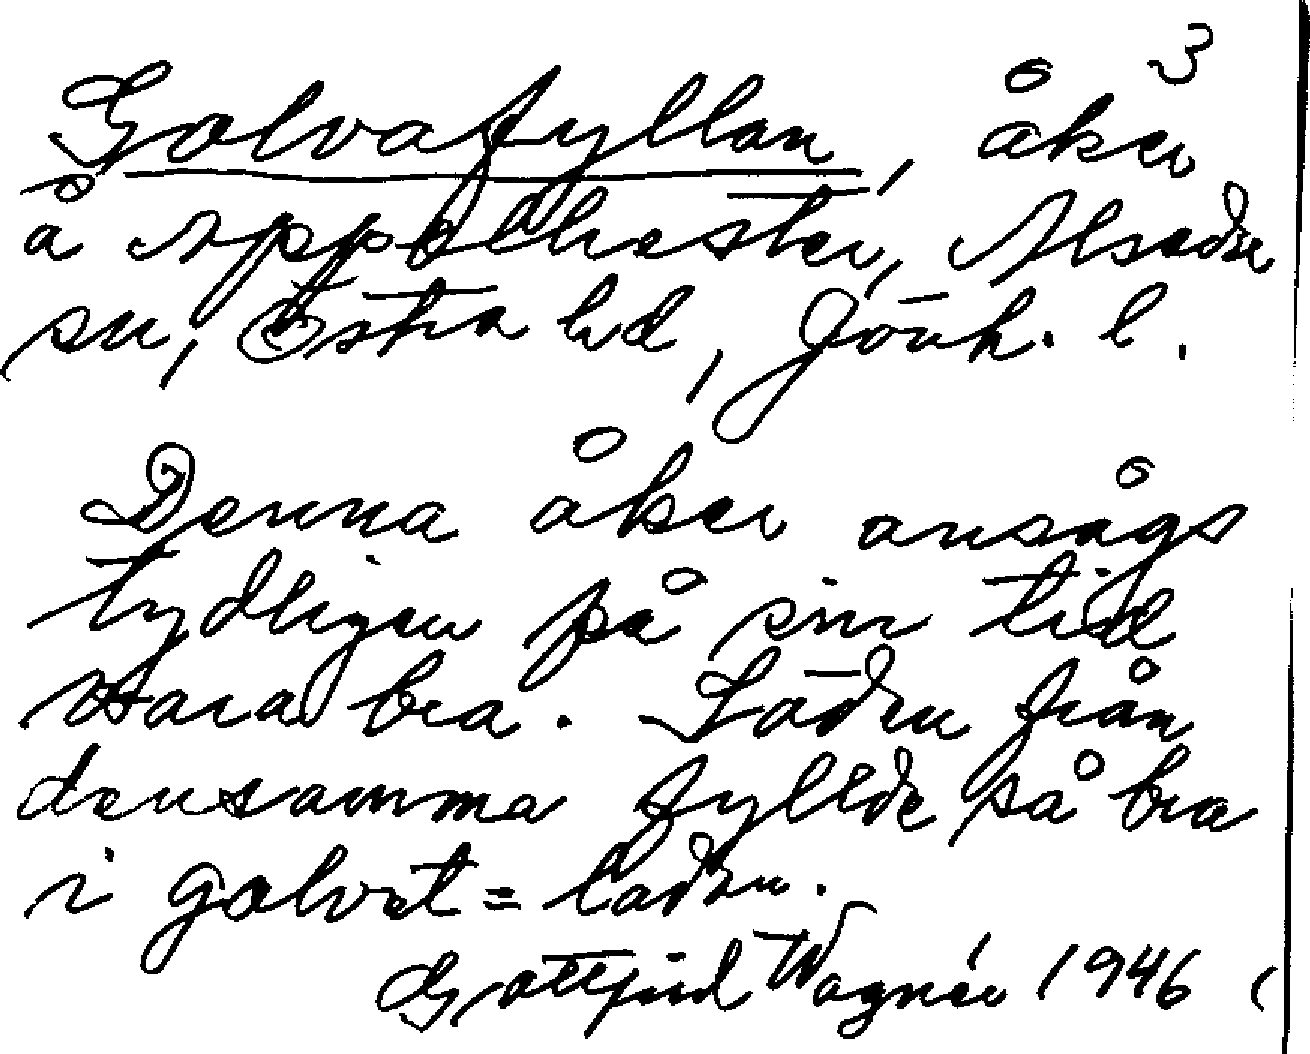 3
Golvafyllan, åker
å Äppelhester, Alseda
sn, Östra hd, Jönk. l.
Denna åker ansågs
tydligen på sin tid
vara bra. Säden från
densamma fyllde så bra
i golvet = ladan.
Gottfrid Wagnér 1946